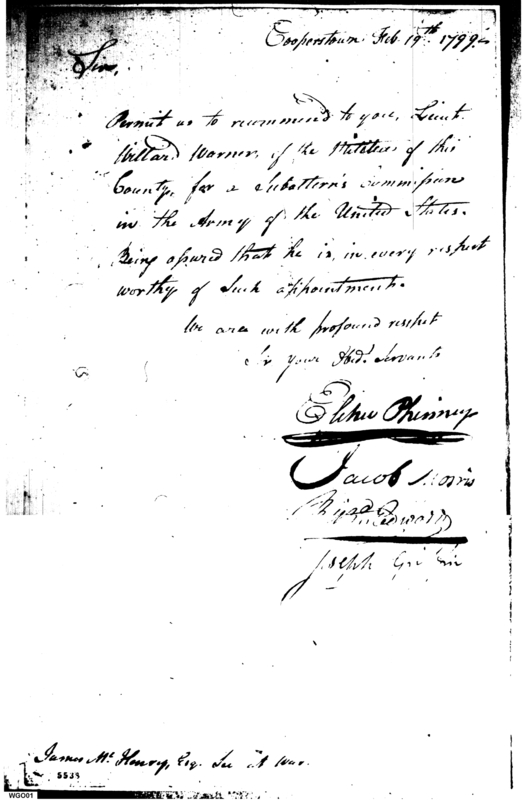 Cooperstown Feb. 19th 1799.
Sir,
Permit us to recommend to you, Lieut.
Willard Warner, of the Militia of this
County, for a Subaltern's Commission
in the Army of the United States.
Being assured that he is in every respect
worthy of such appointment.
We are with profound respect
Sir your Obed. Servants
Elihu Phinney
Jacob Morris
Richd Edwards
Joseph Griffin
James Mc Henry, Esq. Sec at War.
5538
WGO01